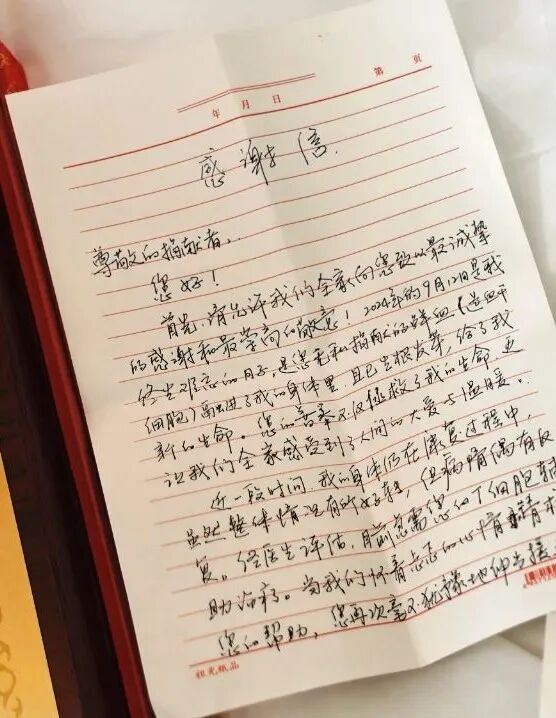 第 页
年 月 日
感谢信
尊敬的捐献者:
您好!
首先,请允许我们全家向您致以最诚挚
的感谢和最崇高的敬意!2024年的9月12日是我
终生难忘的日子,是您无私捐献的鲜血(造血干
细胞)融进了我的身体里,且已生根发芽,给了我
新的生命。您的善举不仅拯救了我的生命,更
让我们全家感受到了人间的大爱与温暖。
近一段时间,我的身体仍在康复过程中,
虽然整体情况有所好转,但病情偶有反
复。经医生评估,目前急需您的T细胞辅
助治疗。当我们怀着忐忑的心情
您的帮助,您再次毫不犹豫地伸出援
祖光纸品